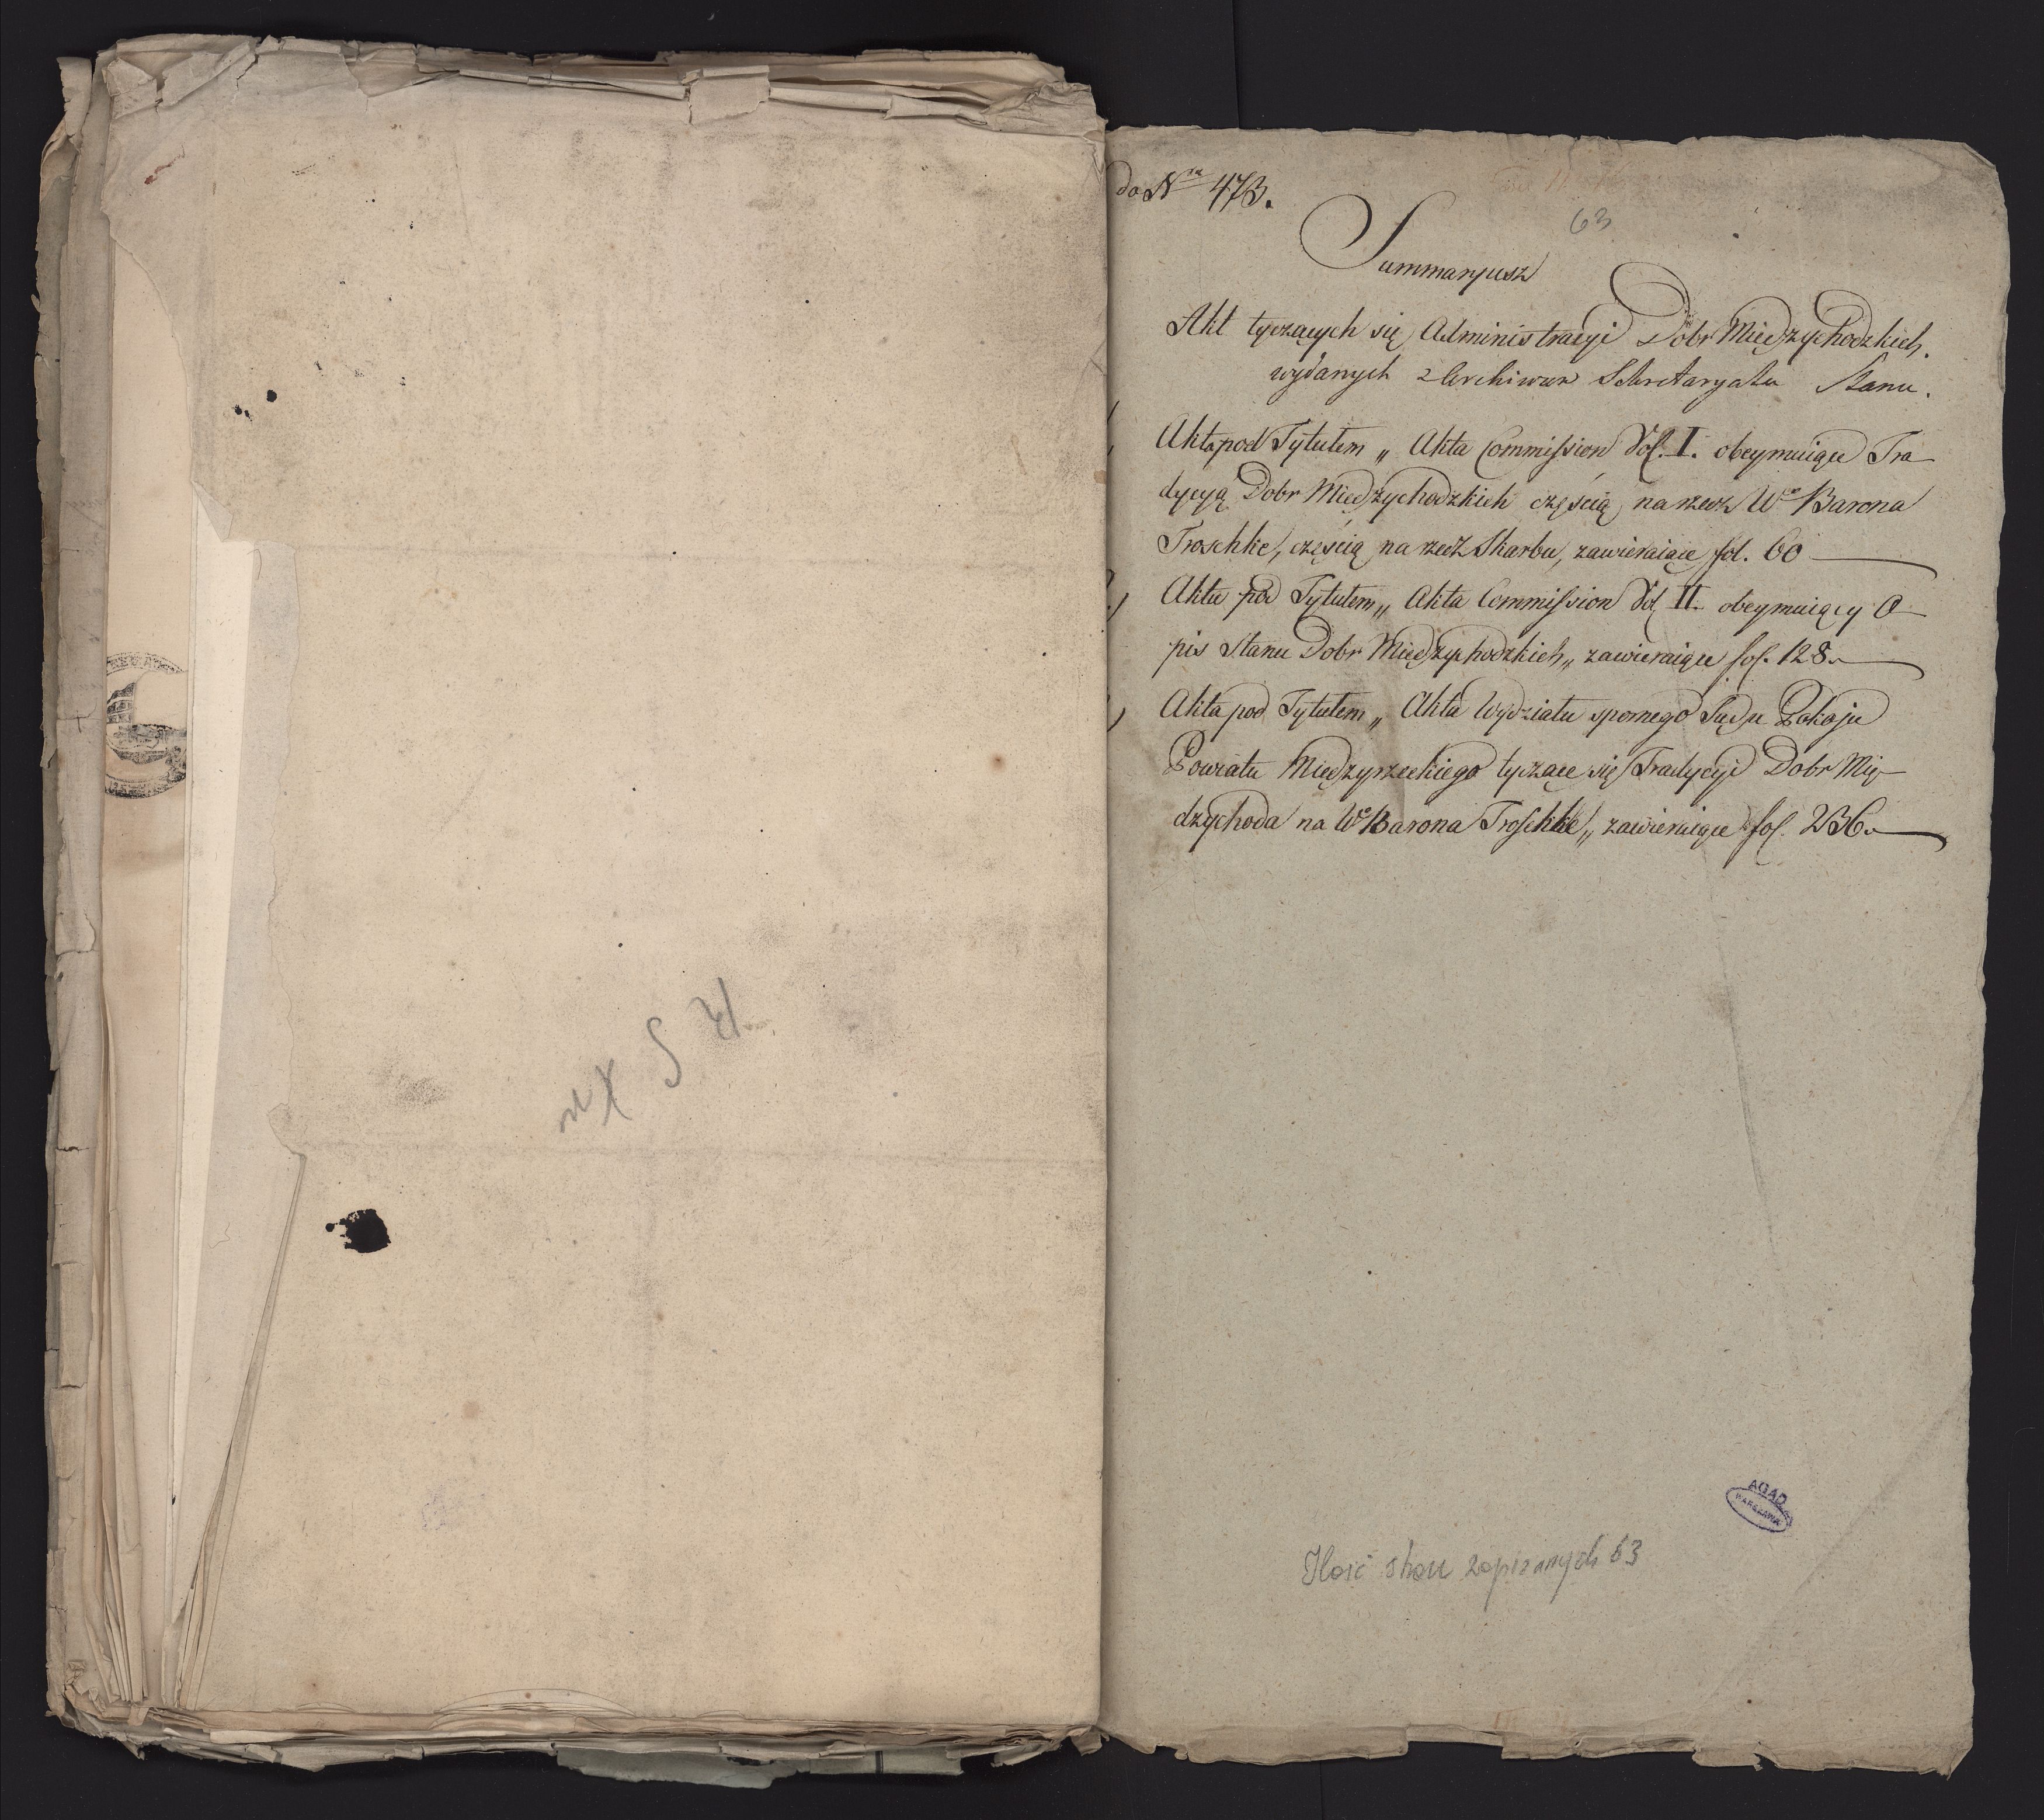 do Nru 473.
63
Summaryusz
Akt tyczących się Administracyi Dobr Międzychodzkich.
wydanych z Archiwum Sekretaryatu Stanu.
Akta pod Tytułem „ Akta Commission Vol. I. obeymuiące Tra
dycyą Dobr Międzychodzkich częścią na rzecz Wo Barona
Troschke, częścią na rzecz Skarbu, zawieraiące fol. 60
Akta pod Tytułem „ Akta Commission Vol II. obeymuiący O
pis Stanu Dobr Międzychodzkich „ zawieraiące fol. 128.
Akta pod Tytułem „ Akta Wydziału spornego Sądu Pokoju
Powiatu Międzyrzeckiego tyczące się Tradycyi Dobr Mię
dzychoda na Wo Barona Troschke „ zawieraiące fol. 236.
AGAD
WARSZAWA
Ilość stron zapisanych 63